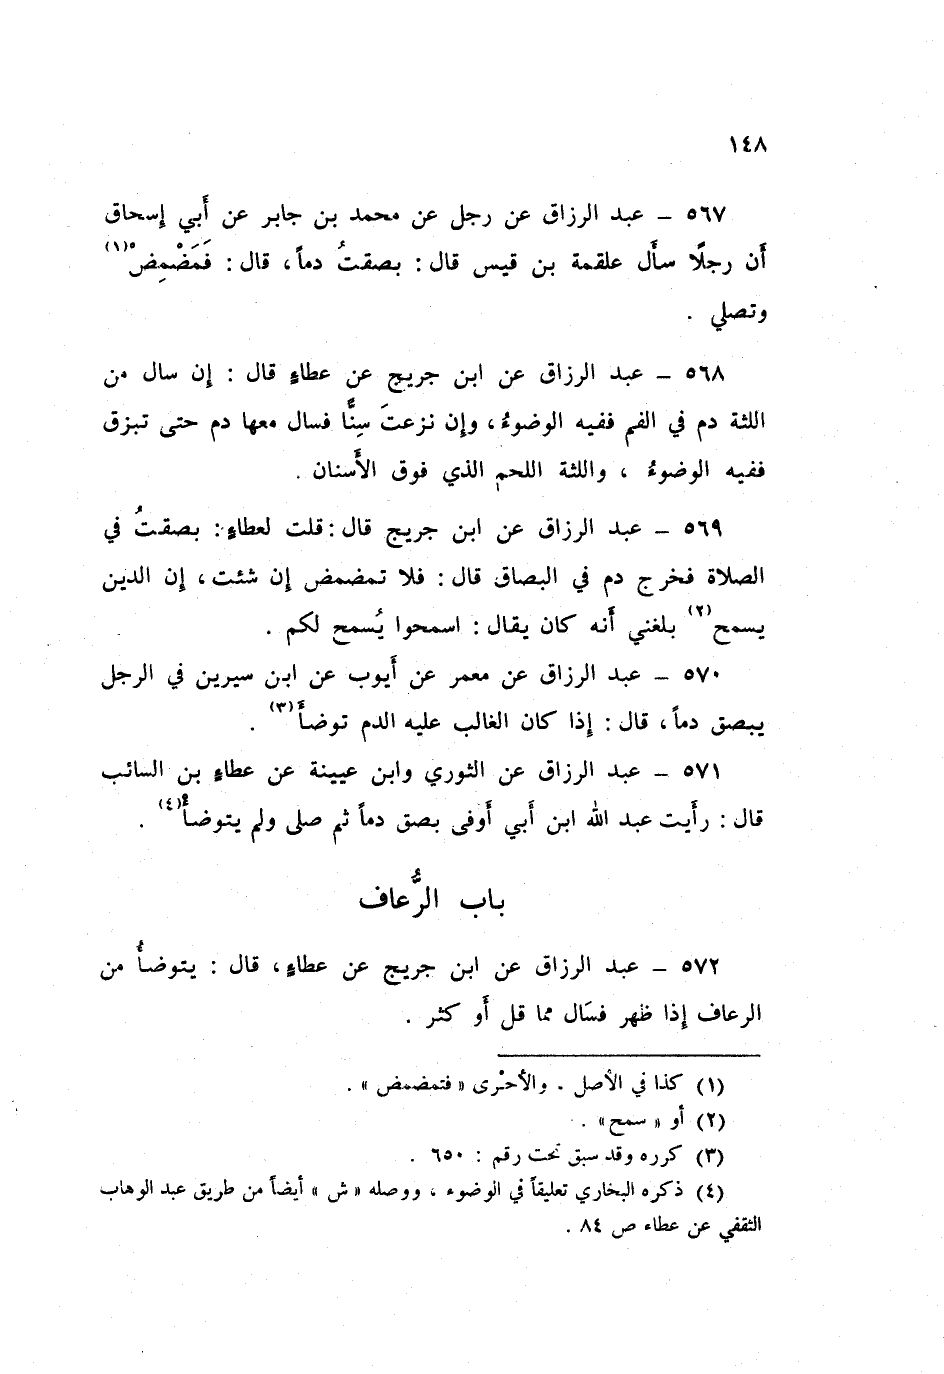 ١٤٨
٥٦٧ – عبد الرزاق عن رجل عن محمد بن جابر عن أَبي إِسحاق
أَن رجلًا سأَل علقمة بن قيس قال : بصقتُ دماً ، قال : فَمَضْمِضْ(١)
وتصلي .
٥٦٨ – عبد الرزاق عن ابن جريج عن عطاءٍ قال : إِن سال من
اللثة دم في الفم ففيه الوضوءُ ، وإِن نزعتَ سِنًّا فسال معها دم حتى تبزق
ففيه الوضوءُ ، واللثة اللحم الذي فوق الأَسنان .
٥٦٩ – عبد الرزاق عن ابن جريج قال : قلت لعطاءٍ : بصقتُ في
الصلاة فخرج دم في البصاق قال : فلا تمضمض إِن شئت ، إِن الدين
يسمح(٢) بلغني أَنه كان يقال : اسمحوا يُسمح لكم .
٥٧٠ – عبد الرزاق عن معمر عن أَيوب عن ابن سيرين في الرجل
يبصق دماً ، قال : إِذا كان الغالب عليه الدم توضأَ(٣) .
٥٧١ – عبد الرزاق عن الثوري وابن عيينة عن عطاءِ بن السائب
قال : رأَيت عبد الله ابن أَبي أَوفى بصق دماً ثم صلى ولم يتوضأْ(٤) .
باب الرُّعاف
٥٧٢ – عبد الرزاق عن ابن جريج عن عطاءٍ ، قال : يتوضأُ من
الرعاف إِذا ظهر فسَال مما قل أَو كثر .
(١) كذا في الأصل . والأحْرى « فتمضمض » .
(٢) أو « سمح » .
(٣) كرره وقد سبق تحت رقم : ٦٥٠ .
(٤) ذكره البخاري تعليقاً في الوضوء ، ووصله « ش » أيضاً من طريق عبد الوهاب
الثقفي عن عطاء ص ٨٤ .